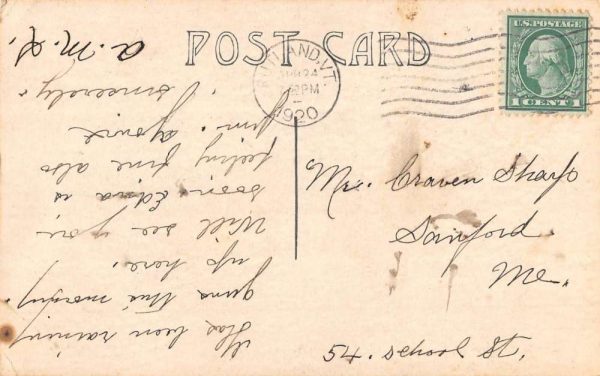 POST CARD
U.S. POSTAGE
1 CENT 1
RUTLAND, VT.
24
PM
1920
Mr. Craven Sharp
Sanford.
Me.
54. School St.
Has been raining
this morning
up here.
Will see you
soon. Edna is
feeling fine also
Jim.
sincerely.